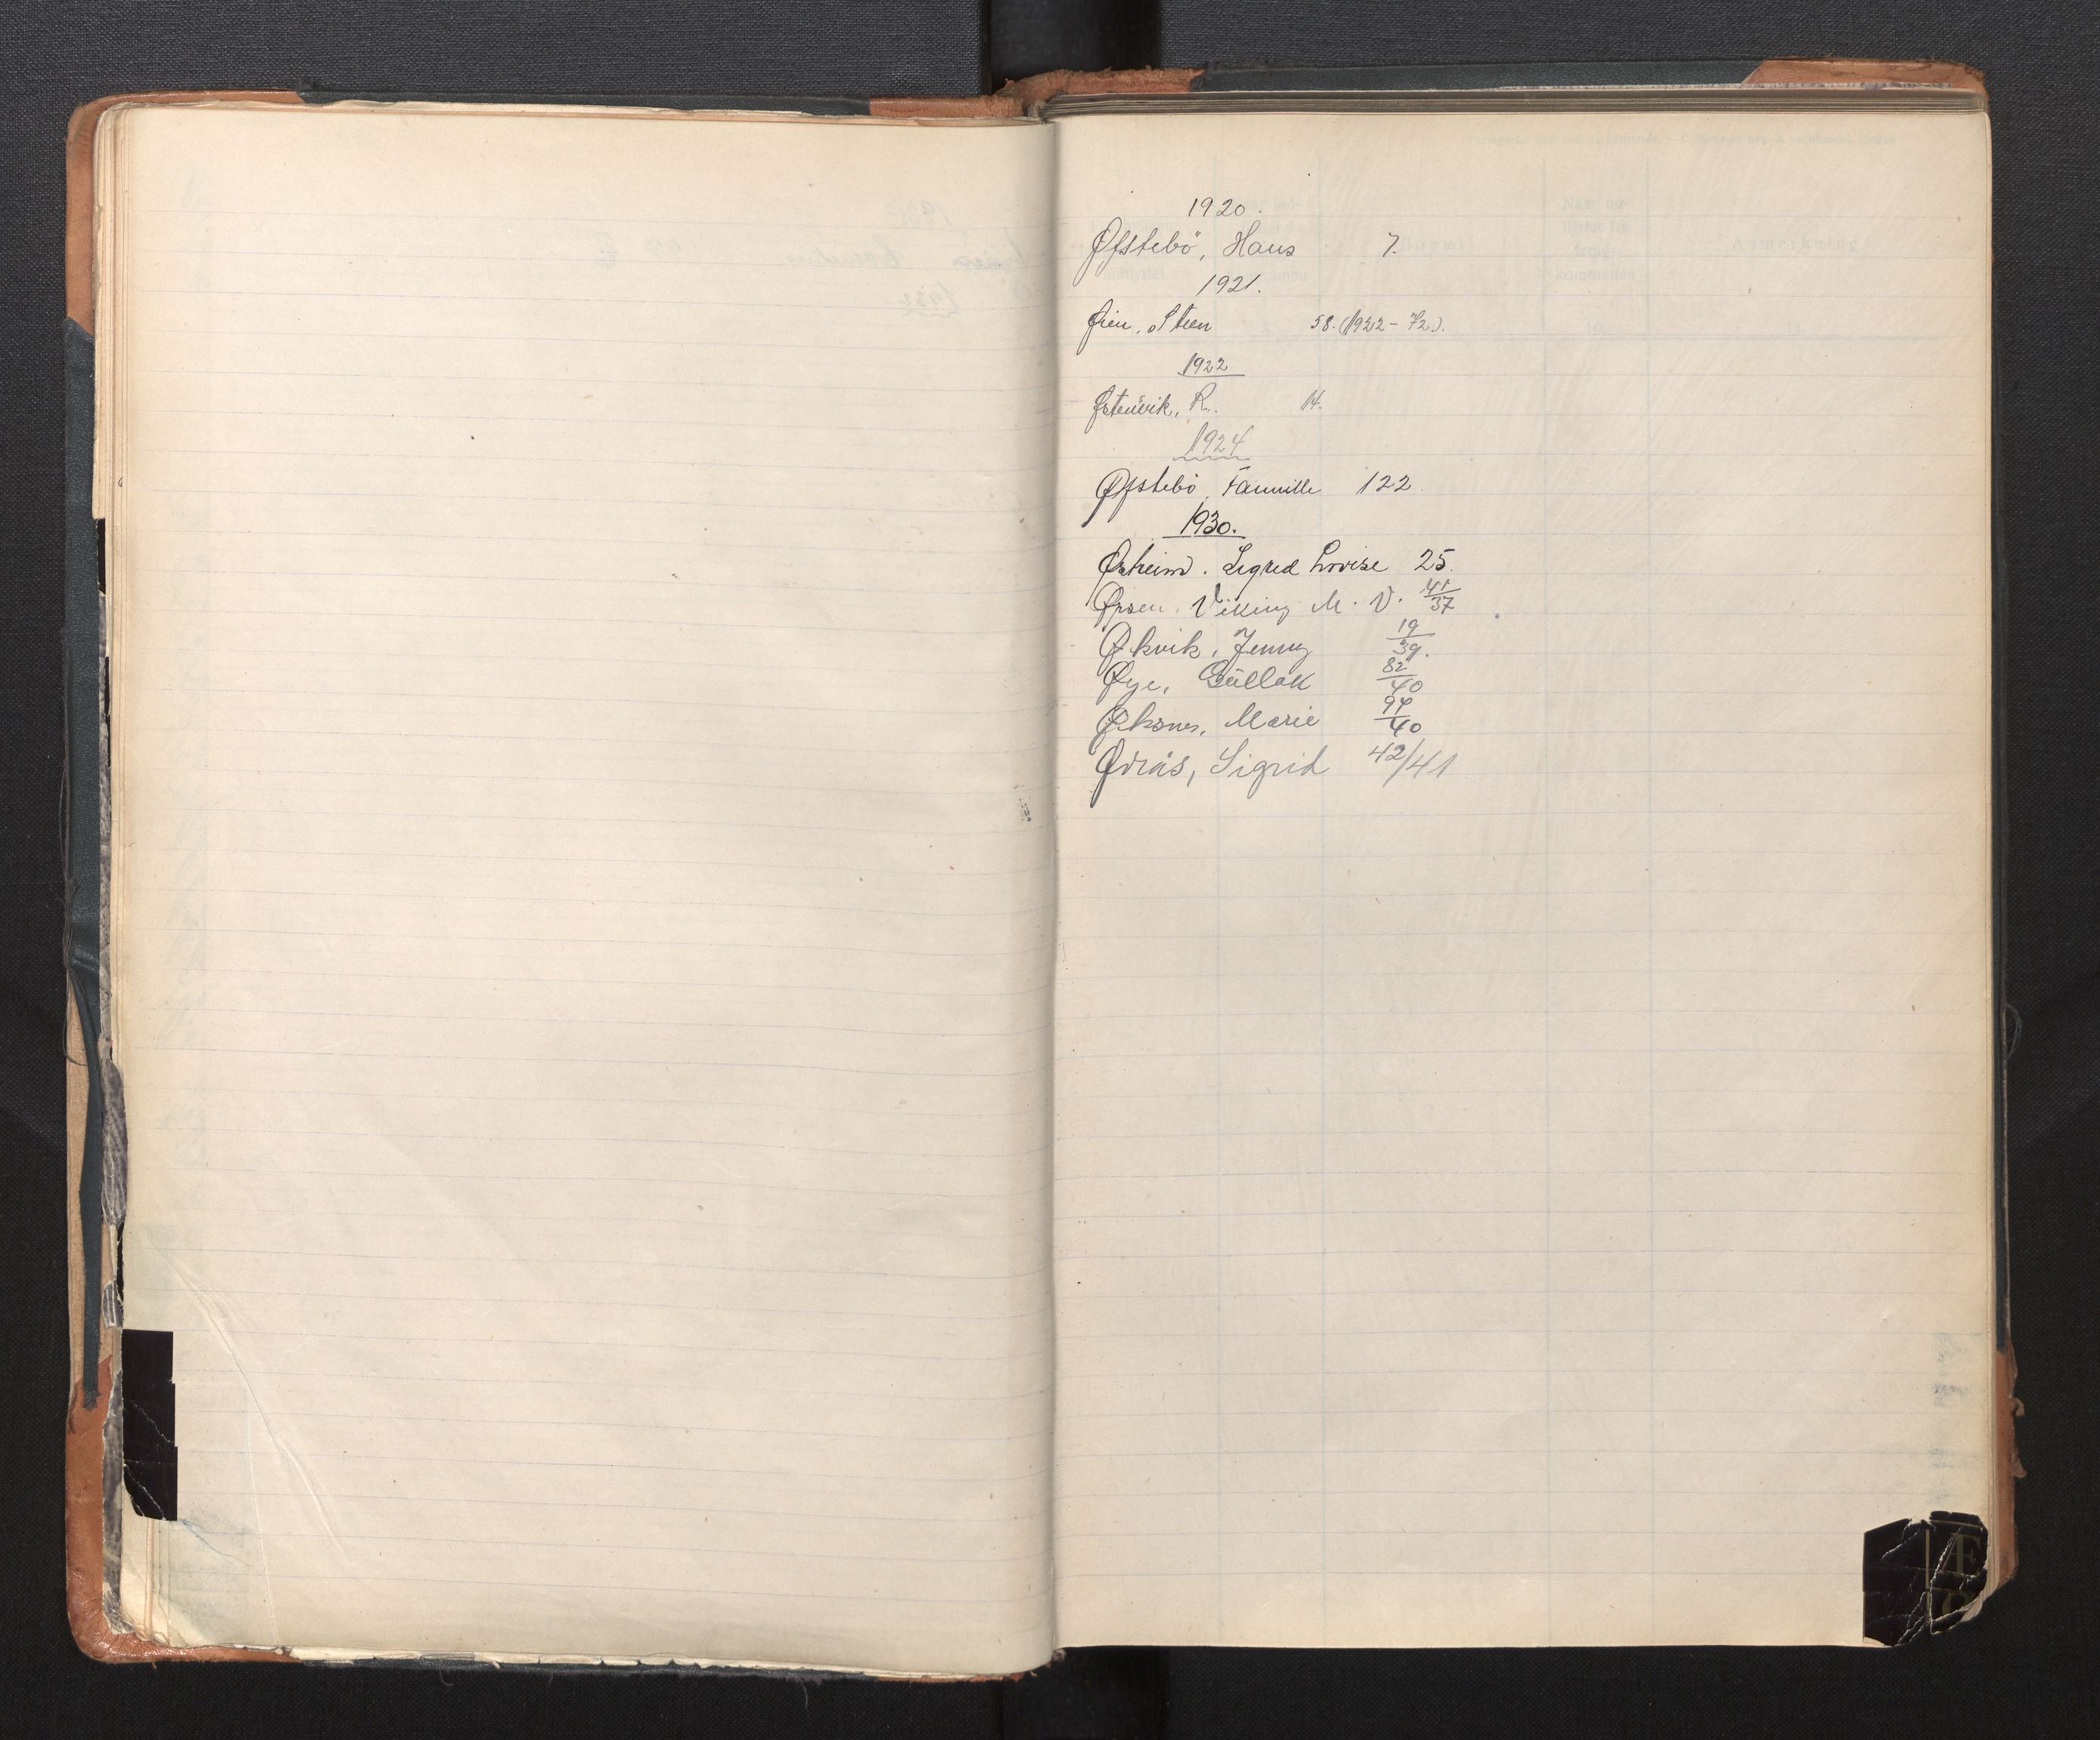 1920.
Øfstebö, Hans 7.
1921.
Øien, Steen 58. (1922 - 72).
1922
Østenvik, R. 14.
1924
Øfstebö, 122
1930.
Øsheim. Sigrid Lovise 25.
Viking M. V. 41/37
Økvik, Jenny 19/39.
Øye, Güllak 82/40
Øksnes, Marie 94/40
Øvrås, Sigrid 42/41
Æ